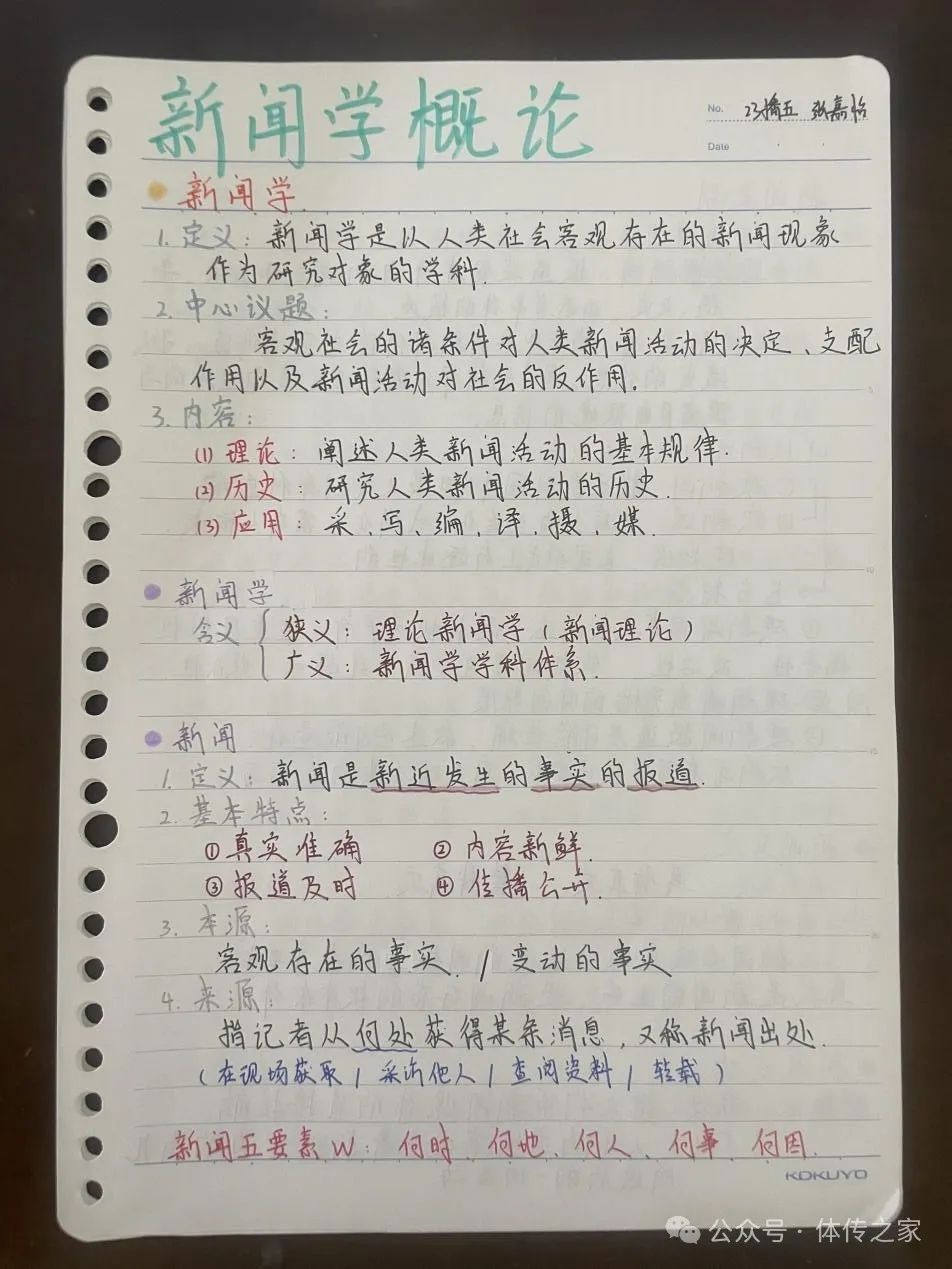 新闻学概论
No. 23播五 张嘉怡
Date
新闻学
1. 定义：新闻学是以人类社会客观存在的新闻现象
作为研究对象的学科.
2. 中心议题：
客观社会的诸条件对人类新闻活动的决定、支配
作用以及新闻活动对社会的反作用.
3. 内容：
(1) 理论：阐述人类新闻活动的基本规律.
(2) 历史：研究人类新闻活动的历史.
(3) 应用：采、写、编、译、摄、媒.
新闻学
含义 { 狭义：理论新闻学（新闻理论）
广义：新闻学学科体系.
新闻
1. 定义：新闻是新近发生的事实的报道.
2. 基本特点：
①真实准确 ②内容新鲜.
③报道及时 ④传播公开.
3. 本源：
客观存在的事实. / 变动的事实
4. 来源：
指记者从何处获得某条消息，又称新闻出处.
（在现场获取 / 采访他人 / 查阅资料 / 转载）
新闻五要素W：何时、何地、何人、何事、何因.
KOKUYO
公众号·体传之家